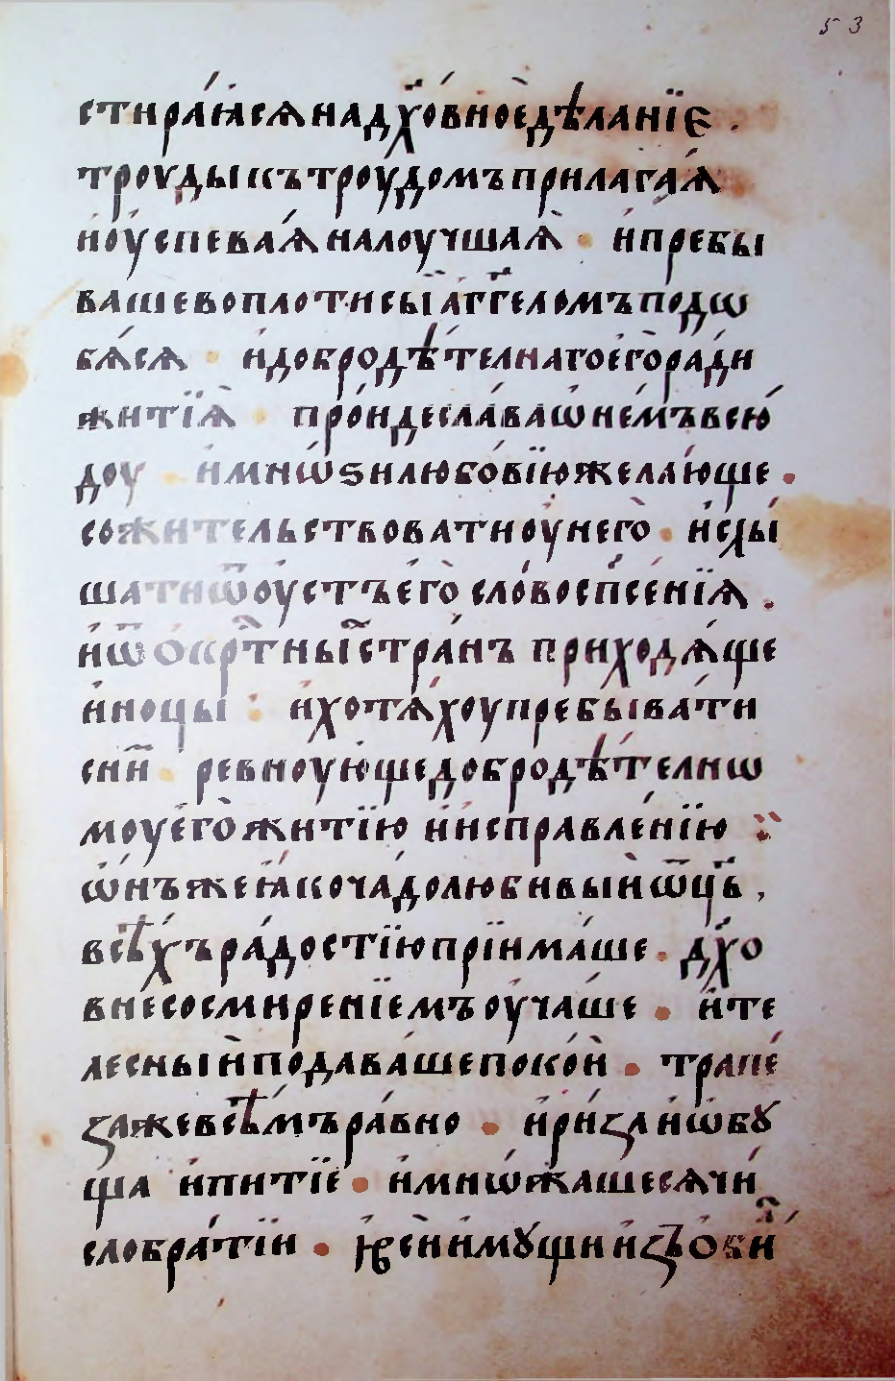 53
стира́ꙗсѧ на дх҃о́вное дѣ́ланїе .
троуды къ троудомъ прилага́ѧ
и҆ оу҆спева́ѧ на лоучшаѧ · и҆ пребы
ваше во плоти сы́й а҆́гг҃еломъ подѡ
бѧ́сѧ · и҆ добродѣ́телнаго е҆го̀ ра́ди
житїѧ̀ про́иде сла́ва ѡ҆ не́мъ всю́
доу · и҆ мно́ѕи любо́вїю жела́юще ·
сожи́тельствовати оу҆ него̀ · и҆ слы́
шати ѿ оу҆́стъ е҆го̀ сло́во сп҃се́нїѧ .
и҆ ѿ ѻ҆кр҇тны стра́нъ приходѧ́ще
и҆ноцы · и҆ хотѧ́хоу пребыва́ти
с ни̑ ревноую́ще добродѣ́телнѡ
моу е҆го̀ житїю и҆ и҆справле́нїю :
ѡ҆́нъ же ꙗ҆́ко чадолюбивый ѿц҃ъ ,
всѣ́хъ ра́достїю прїима́ше · дх҃о
вне со смире́нїемъ оу҆ча́ше · и҆ те
лесны́й пода́ваше поко́й · трапе́
за же всѣ́мъ ра́вно · и҆ ри́за и҆ ѡ҆бꙋ
ща и҆ питїе · и҆ мно́жашесѧ чи
сло бра́тїи · і҆ѯ҃ с ни́мꙋщи и҆з̾ ѻ҆би́